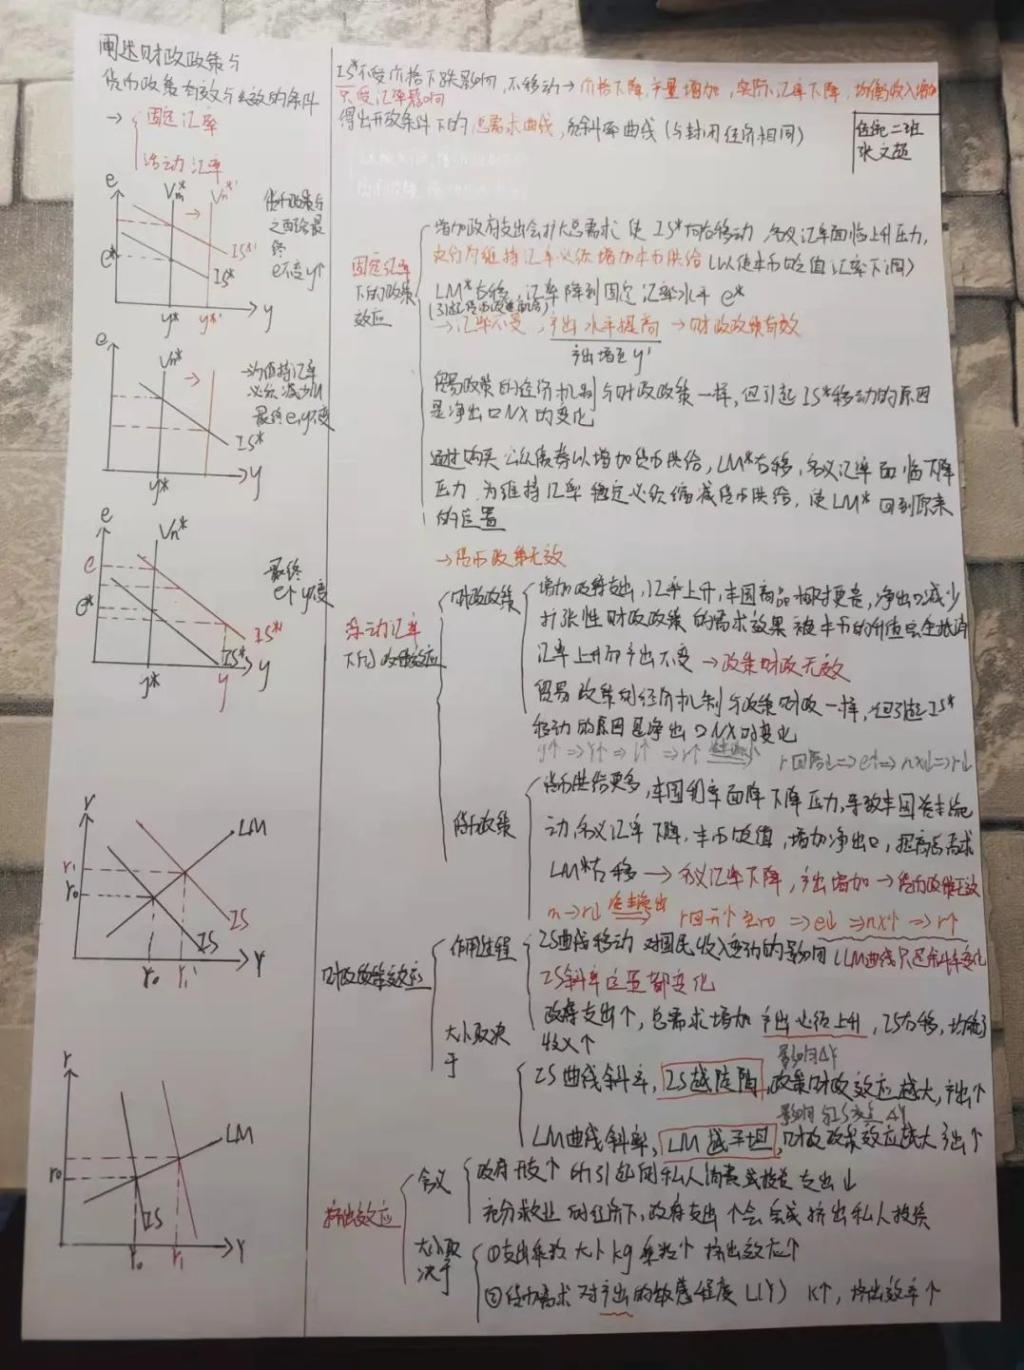 阐述财政政策与
货币政策有效与无效的条件
→ 固定汇率
浮动汇率
IS*不受价格下跌影响,不移动→价格下降,产量增加,实际汇率下降,均衡收入增加
只受汇率影响
得出开放条件下的总需求曲线,负斜率曲线(与封闭经济相同)
二班
张文超
e
e*
y*
y*'
y
IS*'
IS*
e不变y↑
固定汇率
下的政策
效应
增加政府支出会扩大总需求 使IS*向右移动 名义汇率面临上升压力,
央行为维持汇率必须增加本币供给(以使本币贬值汇率下调)
LM*右移,汇率降到固定汇率水平 e*
→汇率不变,产出水平提高→财政政策有效
产出增至y'
贸易政策的经济机制与财政政策一样,但引起IS*移动的原因
是净出口NX的变化
e
→为维持汇率
必须减少M
最终e,y不变
IS*
y*
y
通过购买公众债券以增加货币供给,LM*右移,名义汇率面临下降
压力,为维持汇率稳定必须缩减货币供给,使LM*回到原来
的位置
→货币政策无效
e
e
e*
最终
e↑y不变
IS*'
IS*
y
y*
y
浮动汇率
下的政策效应
财政政策
增加政府支出,汇率上升,本国商品相对更贵,净出口减少
扩张性财政政策的需求效果被本币的升值完全抵消
汇率上升而产出不变→政策财政无效
贸易政策的经济机制与政策财政一样,但引起IS*
移动的原因是净出口NX的变化
货币政策
货币供给更多,本国利率面降下降压力,导致本国资本流
动,名义汇率下降,本币贬值,增加净出口,提高总需求
LM*右移→名义汇率下降,产出增加→货币政策
⇒e↓⇒nx↑⇒r↑
r
LM
r₁
r₀
IS
IS
Y
财政政策效应
作用过程
IS曲线移动 对国民收入变动的影响
IS斜率位置都变化
政府支出↑,总需求增加 产出必须上升,IS右移,均衡
收入↑
大小取决
于
影响ΔY
IS曲线斜率,IS越陡峭,政策财政效应越大,产出↑
LM曲线斜率,LM越平坦,财政政策效应越大 产出↑
r
LM
r₀
IS
Y
挤出效应
含义
政府开支↑所引起的私人消费或投资支出↓
充分就业的经济下,政府支出↑会完全挤出私人投资
大小取
决于
①支出乘数大小 kg乘数↑ 挤出效应↑
②货币需求对产出的敏感程度 L(Y) k↑,挤出效率↑